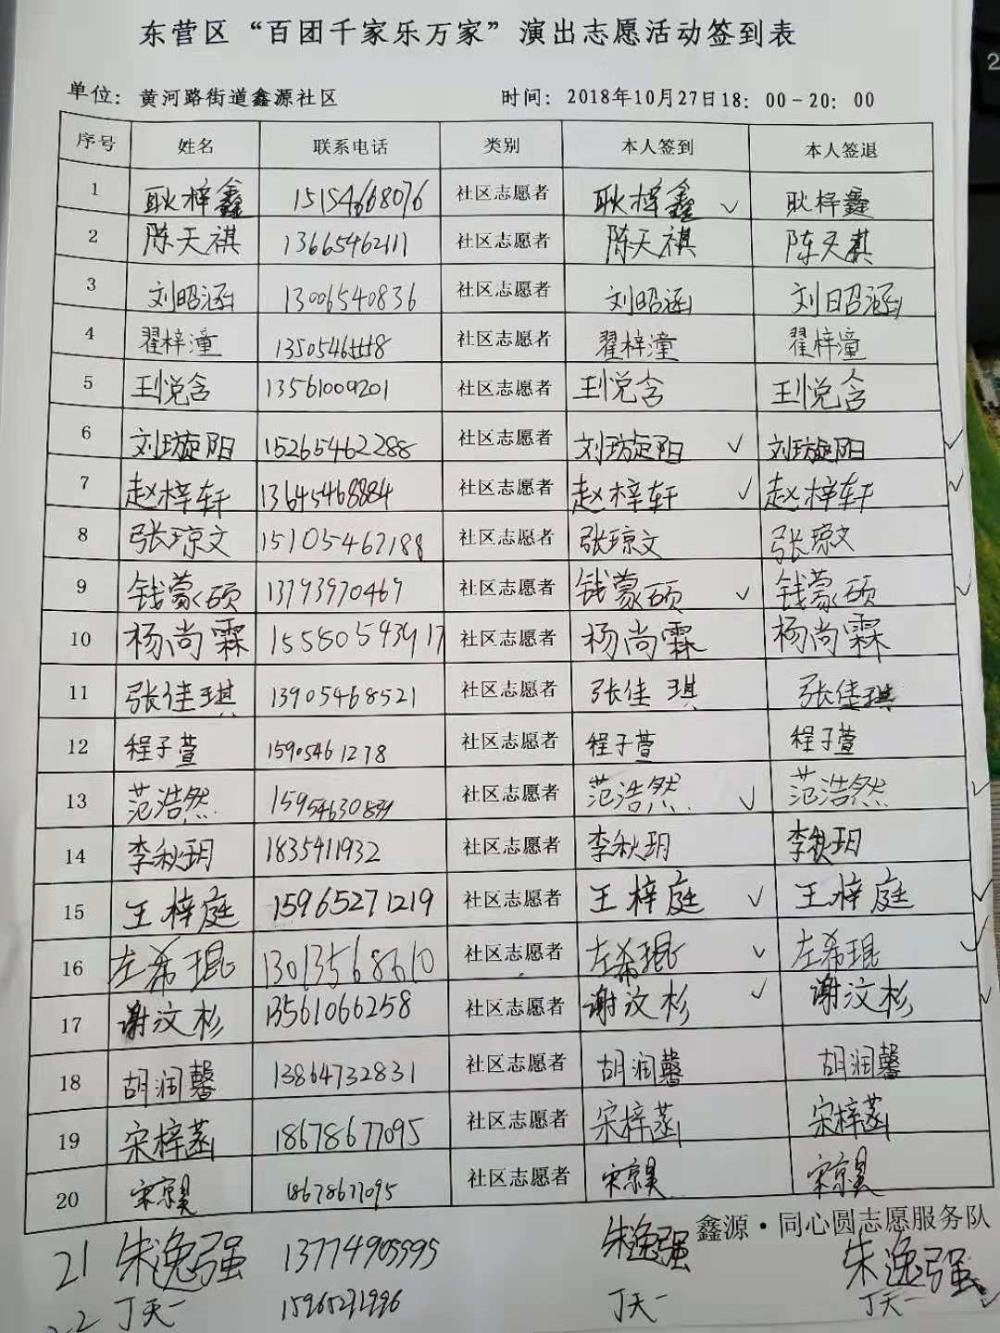 东营区“百团千家乐万家”演出志愿活动签到表
单位：黄河路街道鑫源社区 时间：2018年10月27日18：00-20：00
序号 姓名 联系电话 类别 本人签到 本人签退
1 耿梓鑫 15154668076 社区志愿者 耿梓鑫 ✓ 耿梓鑫
2 陈天祺 13665462111 社区志愿者 陈天祺 陈天祺
3 刘昭涵 13006540836 社区志愿者 刘昭涵 刘昭涵
4 翟梓潼 社区志愿者 翟梓潼 翟梓潼
5 王悦含 13561009201 社区志愿者 王悦含 王悦含
6 刘璇阳 15265462288 社区志愿者 刘璇阳 ✓ 刘璇阳 ✓
7 赵梓轩 13645468884 社区志愿者 赵梓轩 ✓ 赵梓轩 ✓
8 张琼文 15105467188 社区志愿者 张琼文 张琼文
9 钱蒙硕 13793970467 社区志愿者 钱蒙硕 ✓ 钱蒙硕 ✓
10 杨尚霖 15580543917 社区志愿者 杨尚霖 杨尚霖
11 张佳琪 13905468521 社区志愿者 张佳琪 张佳琪
12 程子萱 15905461278 社区志愿者 程子萱 程子萱
13 范浩然 社区志愿者 范浩然 ✓ 范浩然 ✓
14 李秋玥 1835411932 社区志愿者 李秋玥 李秋玥
15 王梓庭 15965271219 社区志愿者 王梓庭 ✓ 王梓庭 ✓
16 左希琨 13013568610 社区志愿者 左希琨 ✓ 左希琨 ✓
17 谢汶杉 13561066258 社区志愿者 谢汶杉 ✓ 谢汶杉 ✓
18 胡润馨 13864732831 社区志愿者 胡润馨 胡润馨
19 宋梓菡 18678677095 社区志愿者 宋梓菡 宋梓菡
20 宋京昊 18678677095 社区志愿者 宋京昊 宋京昊
鑫源·同心圆志愿服务队
21 朱逸强 13774905595 朱逸强 朱逸强
丁天一 15965271996 丁天一 丁天一 ✓